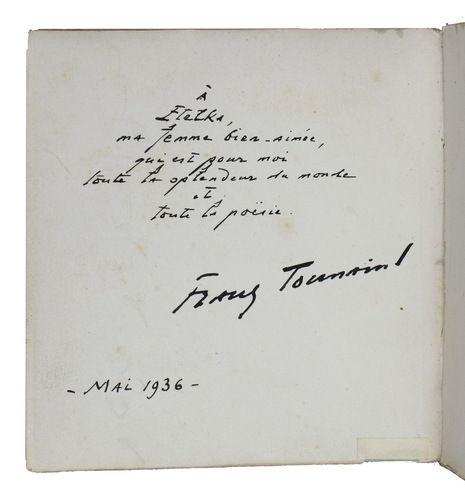 À
Etelka,
ma femme bien-aimée,
qui est pour moi
toute la splendeur du monde
et
toute la poësie.
Franz Toussaint
- MAI 1936 -